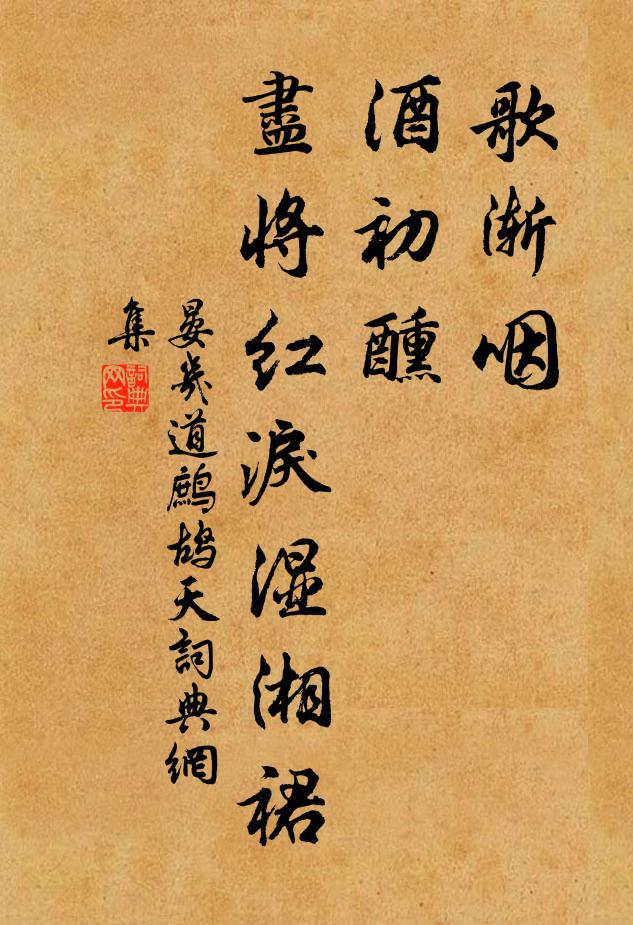 歌漸咽
酒初醺
盡將紅淚濕湘裙
晏幾道鷓鴣天詞典網
集
詞典
网印